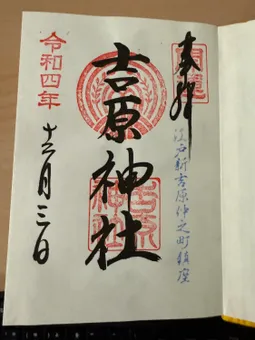 奉拝
江戸新吉原仲之町鎮座
吉原神社
令和四年
十二月三日